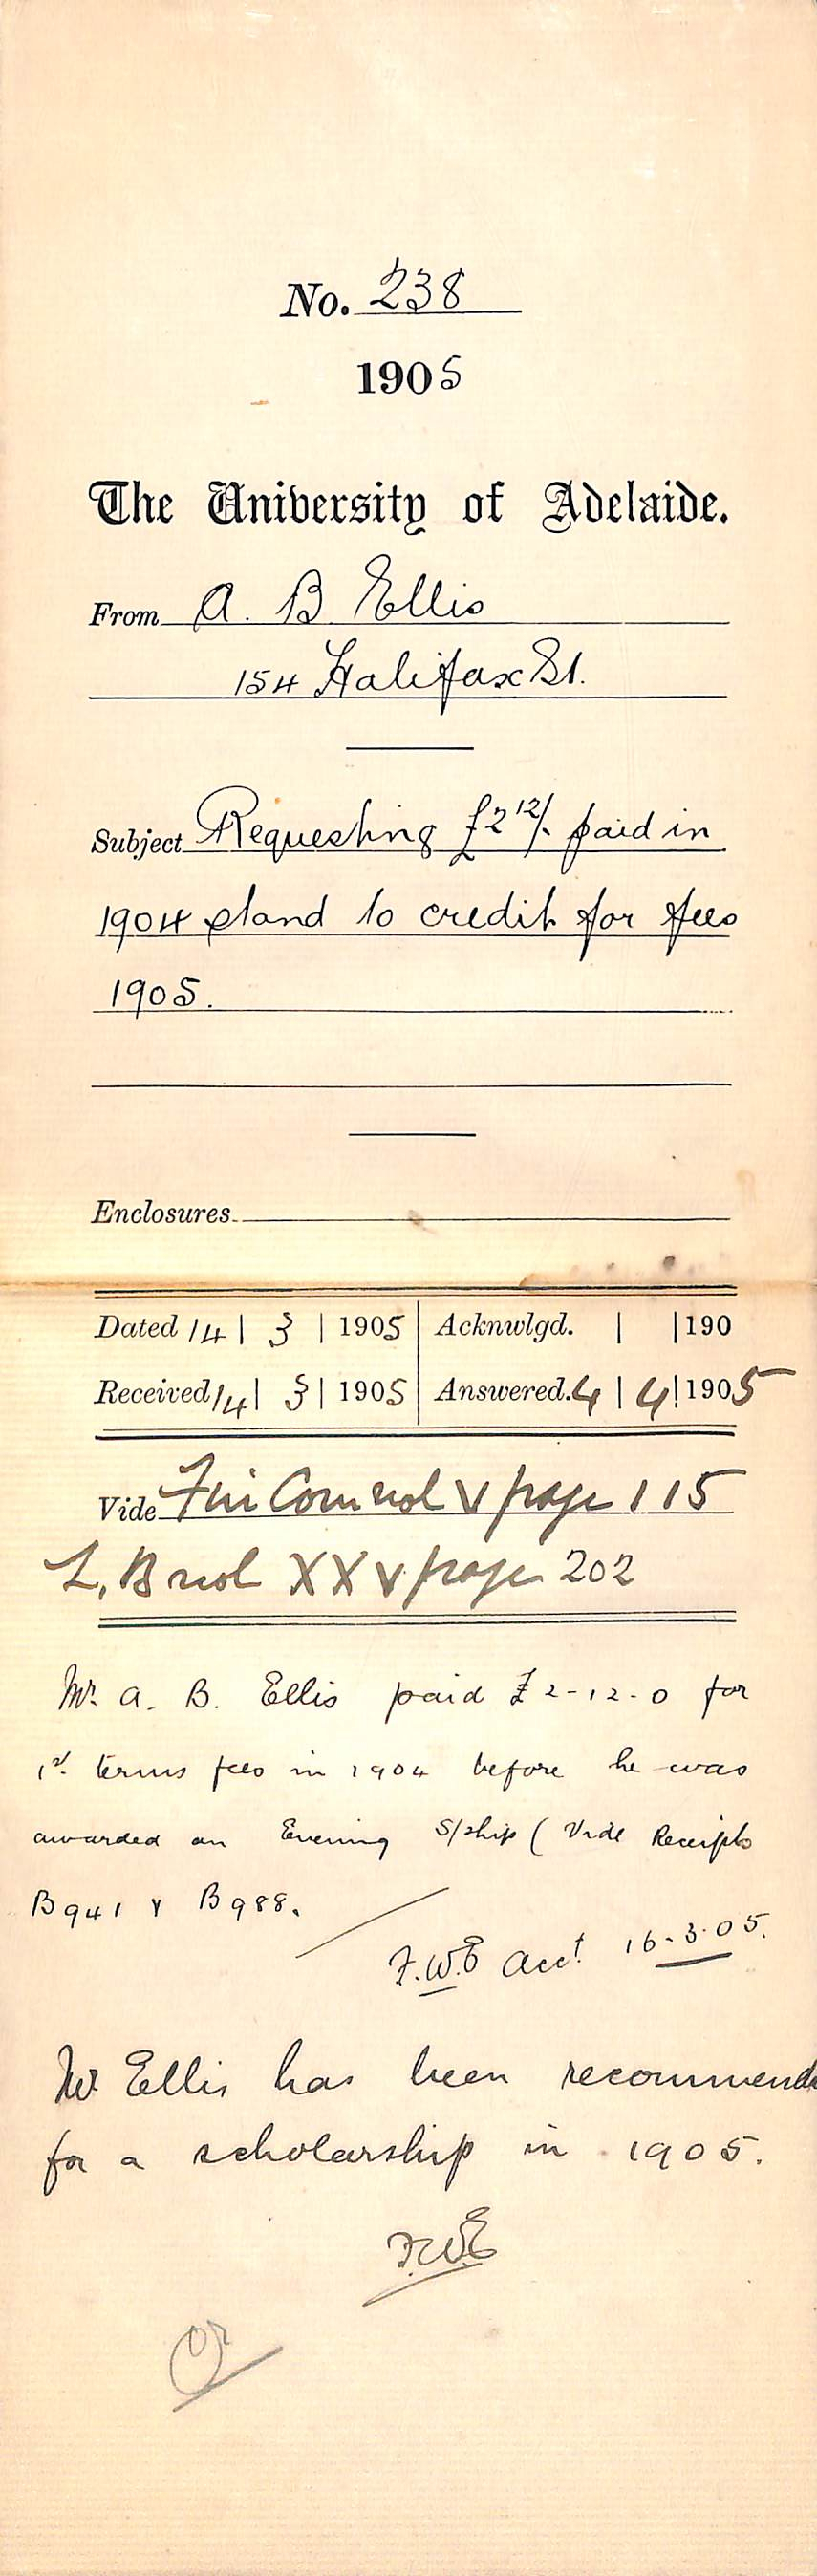 No. 238
1905
The University of Adelaide.
From A. B Ellis
154 Halifax St.
Subject Requesting £2 12/- paid in
1904 stand to credit for fees
1905.
Enclosures
Dated 14 | 3 | 1905 | Acknwlgd. | | 190
Received 14 | 3 | 1905 | Answered. 4 | 4 | 1905
Vide Fin Com vol V page 115
L. B vol XXV page 202
Mr. A. B. Ellis paid £2-12-0 for
1st. terms fees in 1904 before he was
awarded an Evening S/ship (Vide Receipts
B941 & B988.
F.W.E Acct. 16-3-05.
Mr Ellis has been recommend
for a scholarship in 1905.
F.W.E